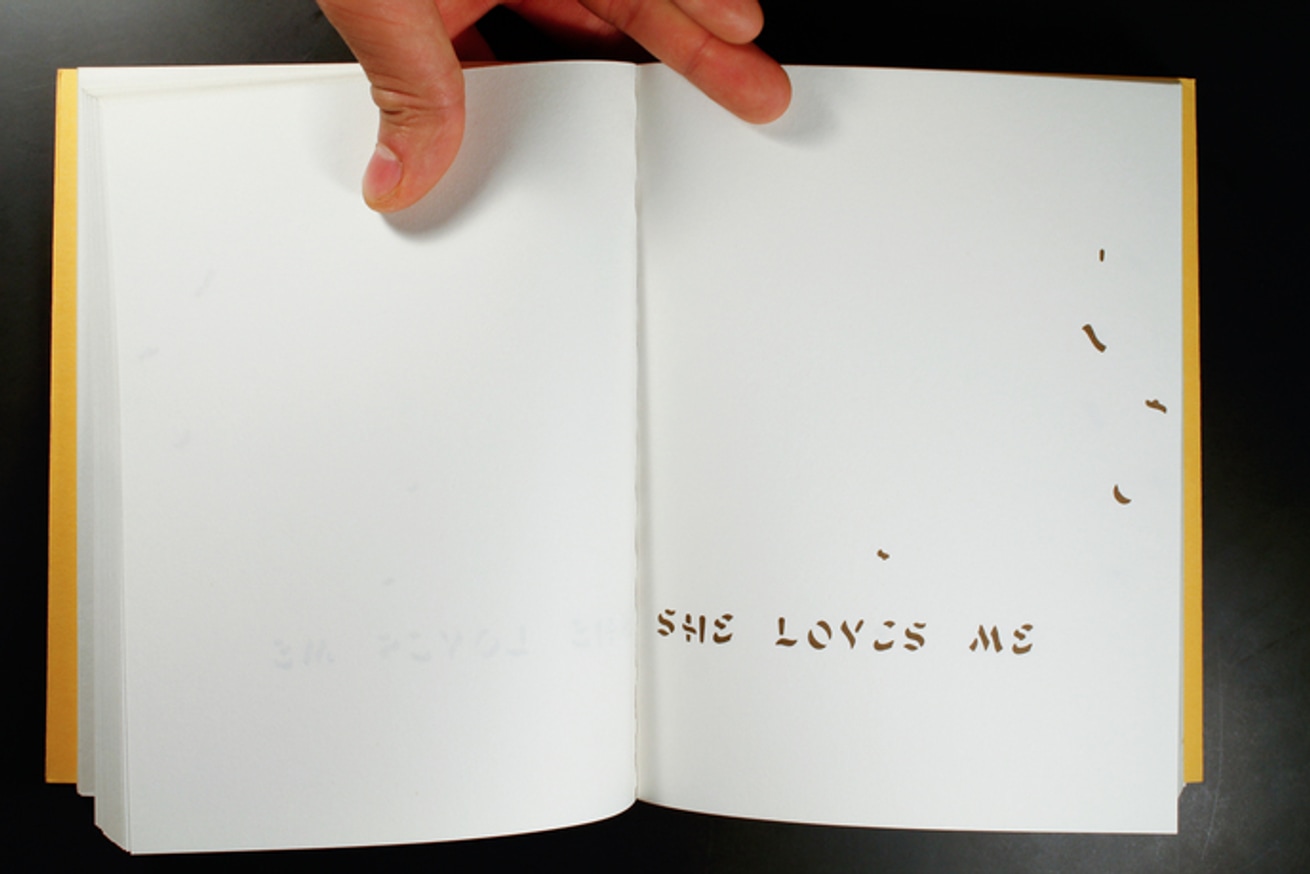 SHE LOVES ME